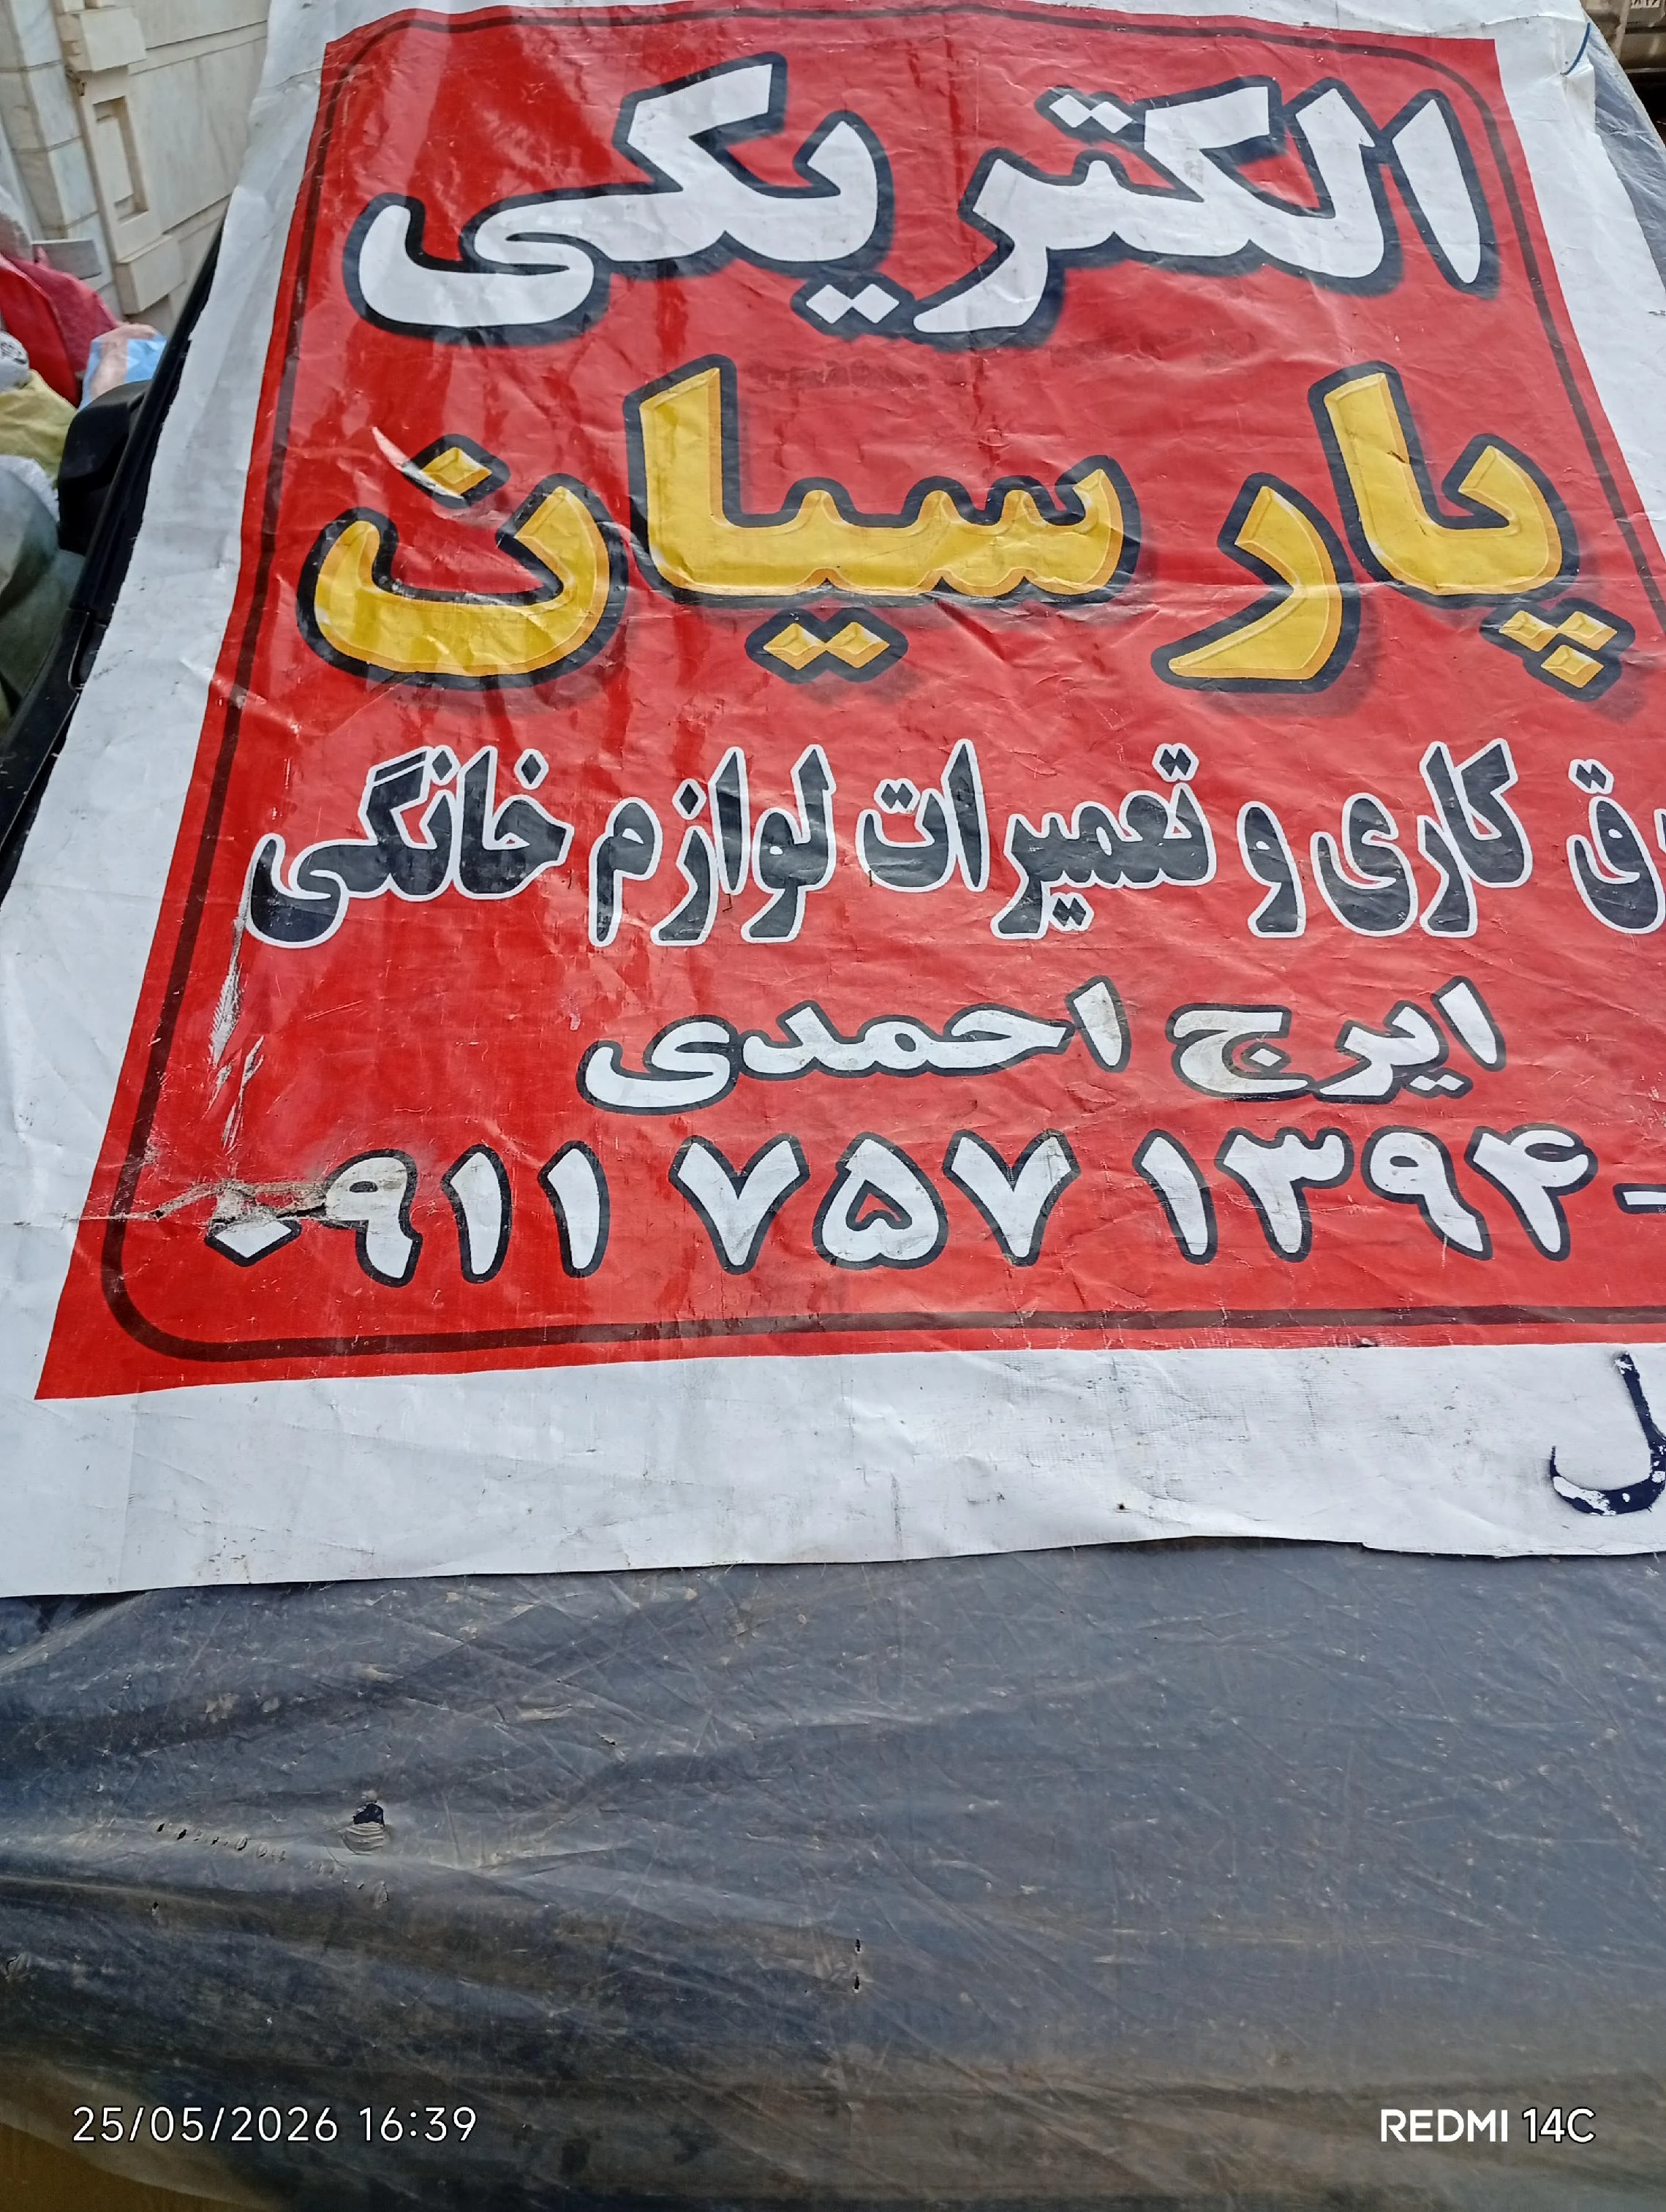 الکتریکی
پارسیان
رق کاری و تعمیرات لوازم خانگی
ایرج احمدی
۰۹۱۱ ۷۵۷ ۱۳۹۴-
ل
25/05/2026 16:39
REDMI 14C